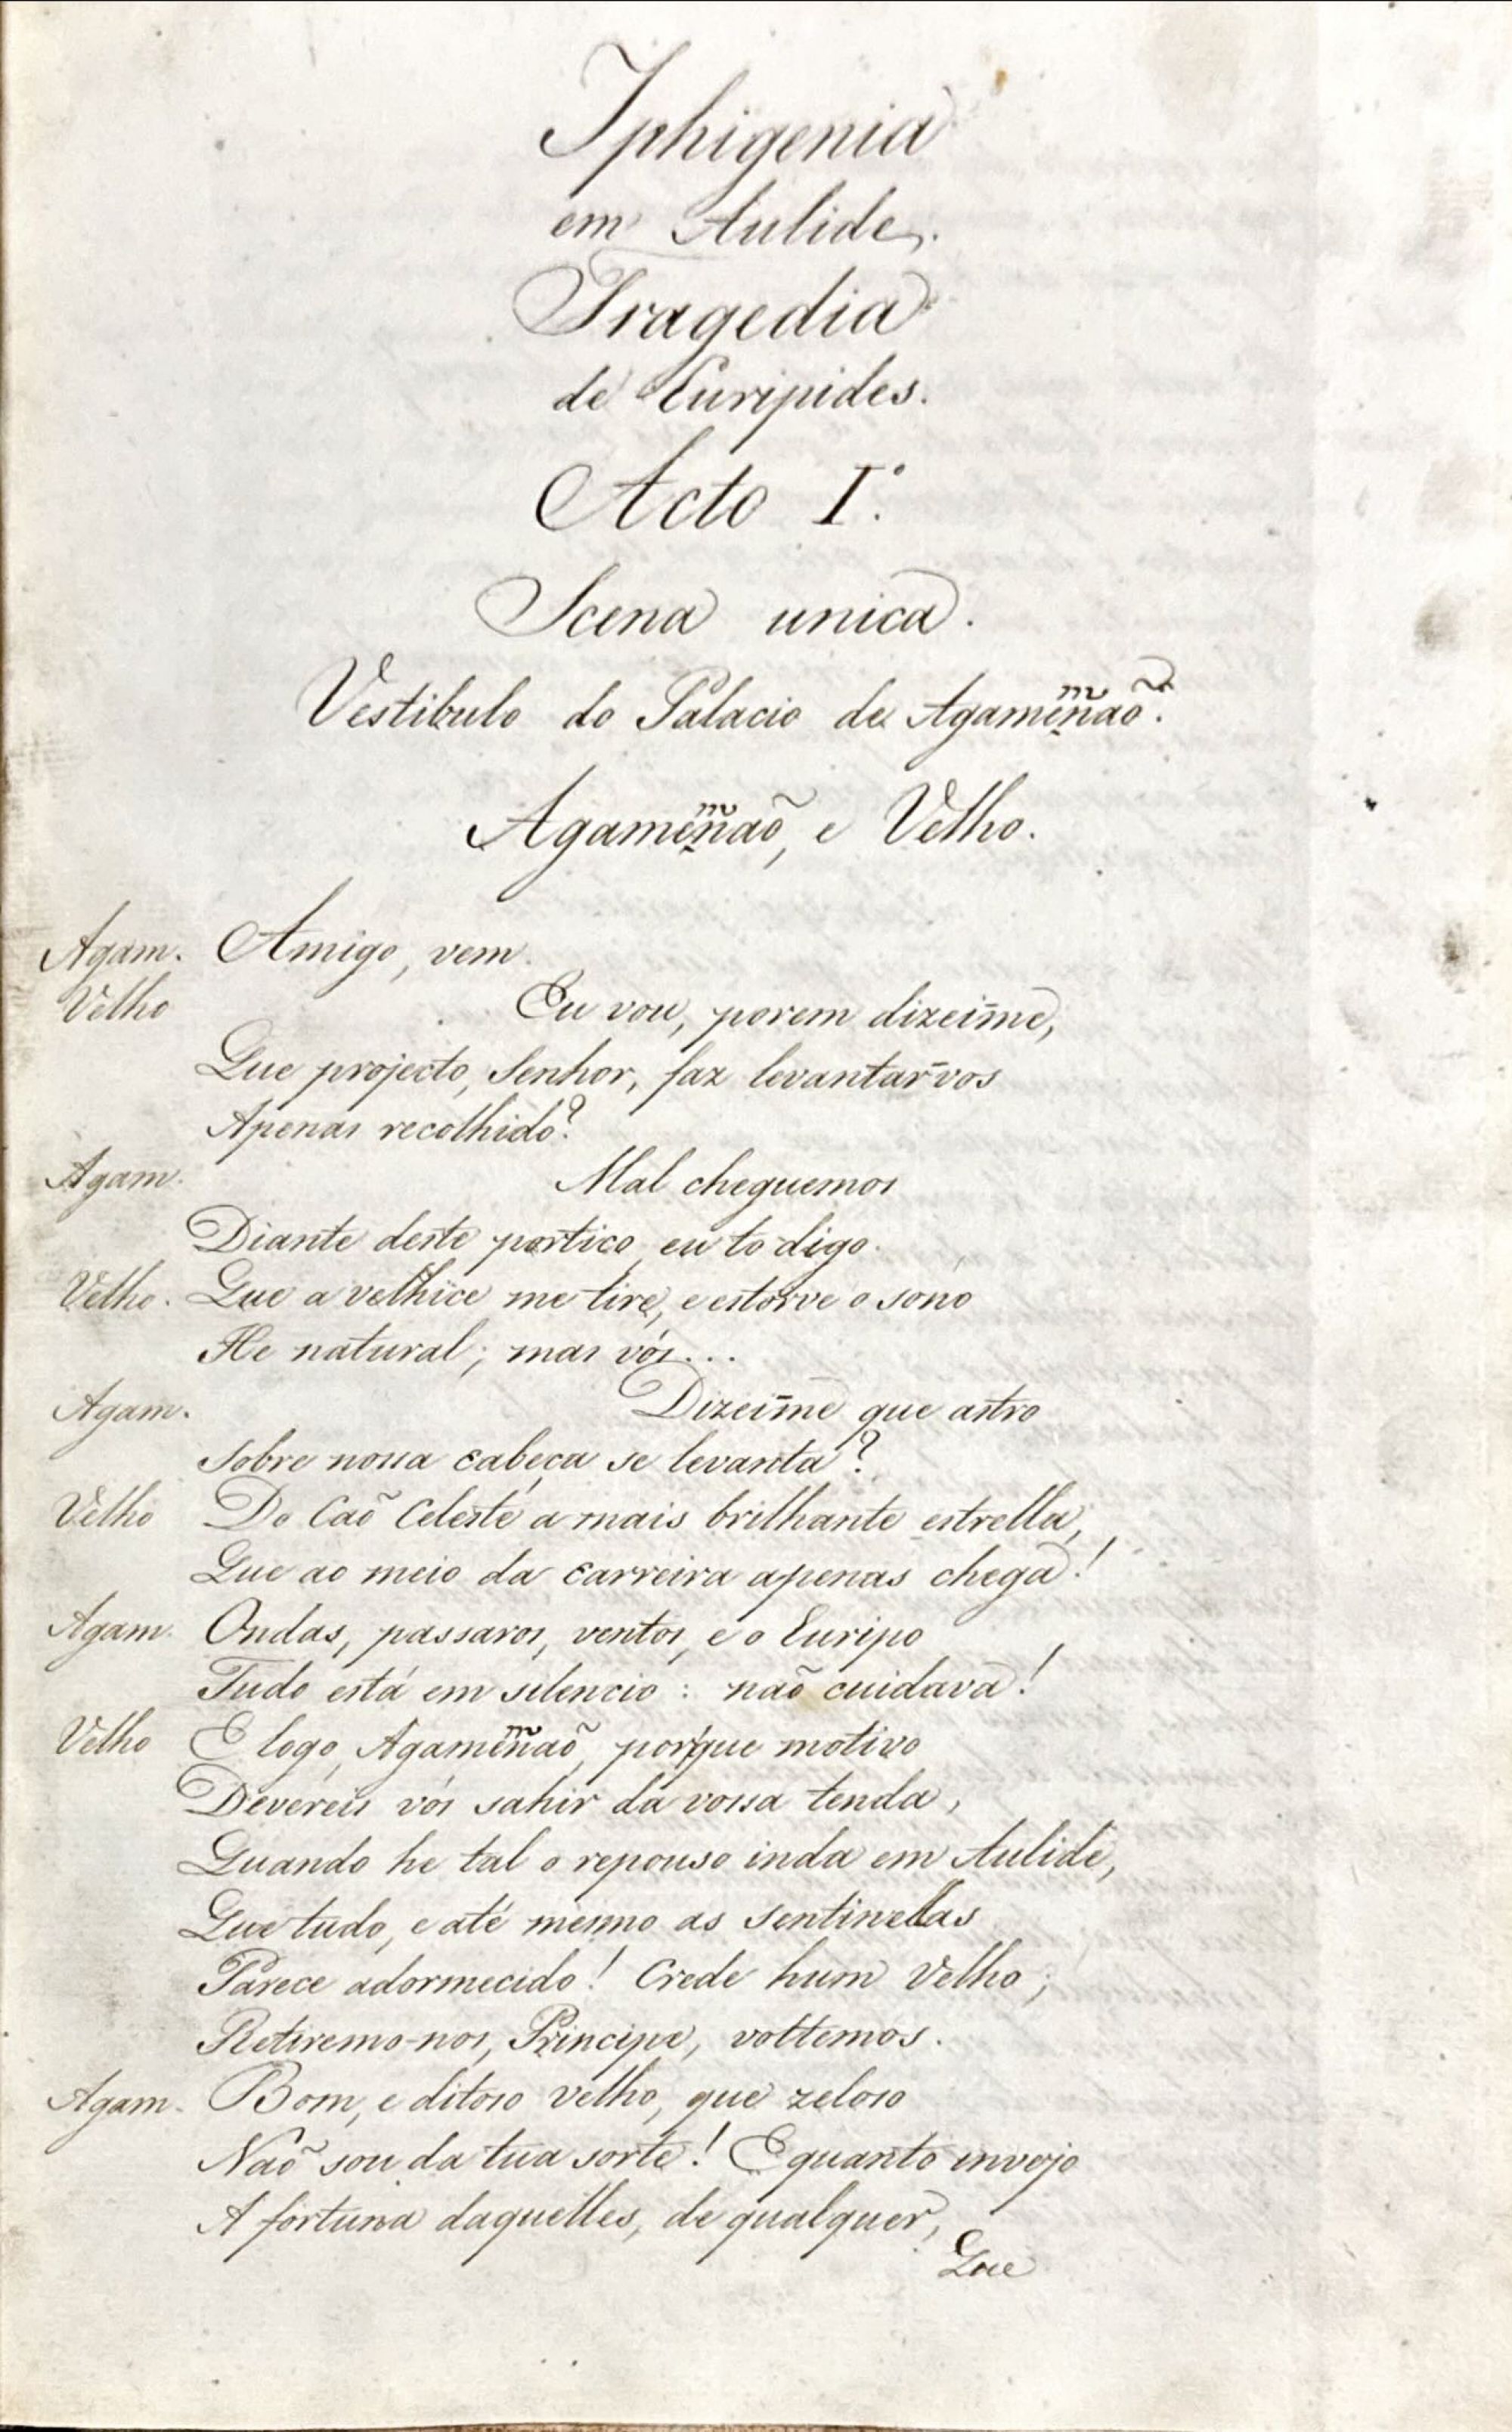 Iphigenia
em Aulide.
Tragedia
de Euripides.
Acto I.º
Scena unica.
Vestibulo do Palacio de Agamem̃naõ.
Agamem̃naõ, e Velho.
Agam. Amigo, vem.
Velho Eu vou, porem dizei-me,
Que projecto, Senhor, faz levantar-vos
Apenas recolhido?
Agam. Mal cheguemos
Diante deste portico, eu to digo.
Velho. Que a velhice me tire, e estorve o sono
He natural; mas vós...
Agam. Dizei-me que astro
Sobre nossa cabeça se levanta?
Velho Do Caõ Celeste a mais brilhante estrella,
Que ao meio da carreira apenas chega!
Agam. Ondas, passaros, ventos, e o Euripo
Tudo está em silencio: naõ cuidava!
Velho E logo, Agamem̃naõ, porque motivo
Devereis vós sahir da vossa tenda,
Quando he tal o repouso inda em Aulide,
Que tudo, e até mesmo as sentinellas
Parece adormecido! Crede hum Velho;
Retiremo-nos, Principe, voltemos.
Agam. Bom, e ditoso velho, que zeloso
Naõ sou da tua sorte! E quanto invejo
A fortuna daquelles, de qualquer,
Que